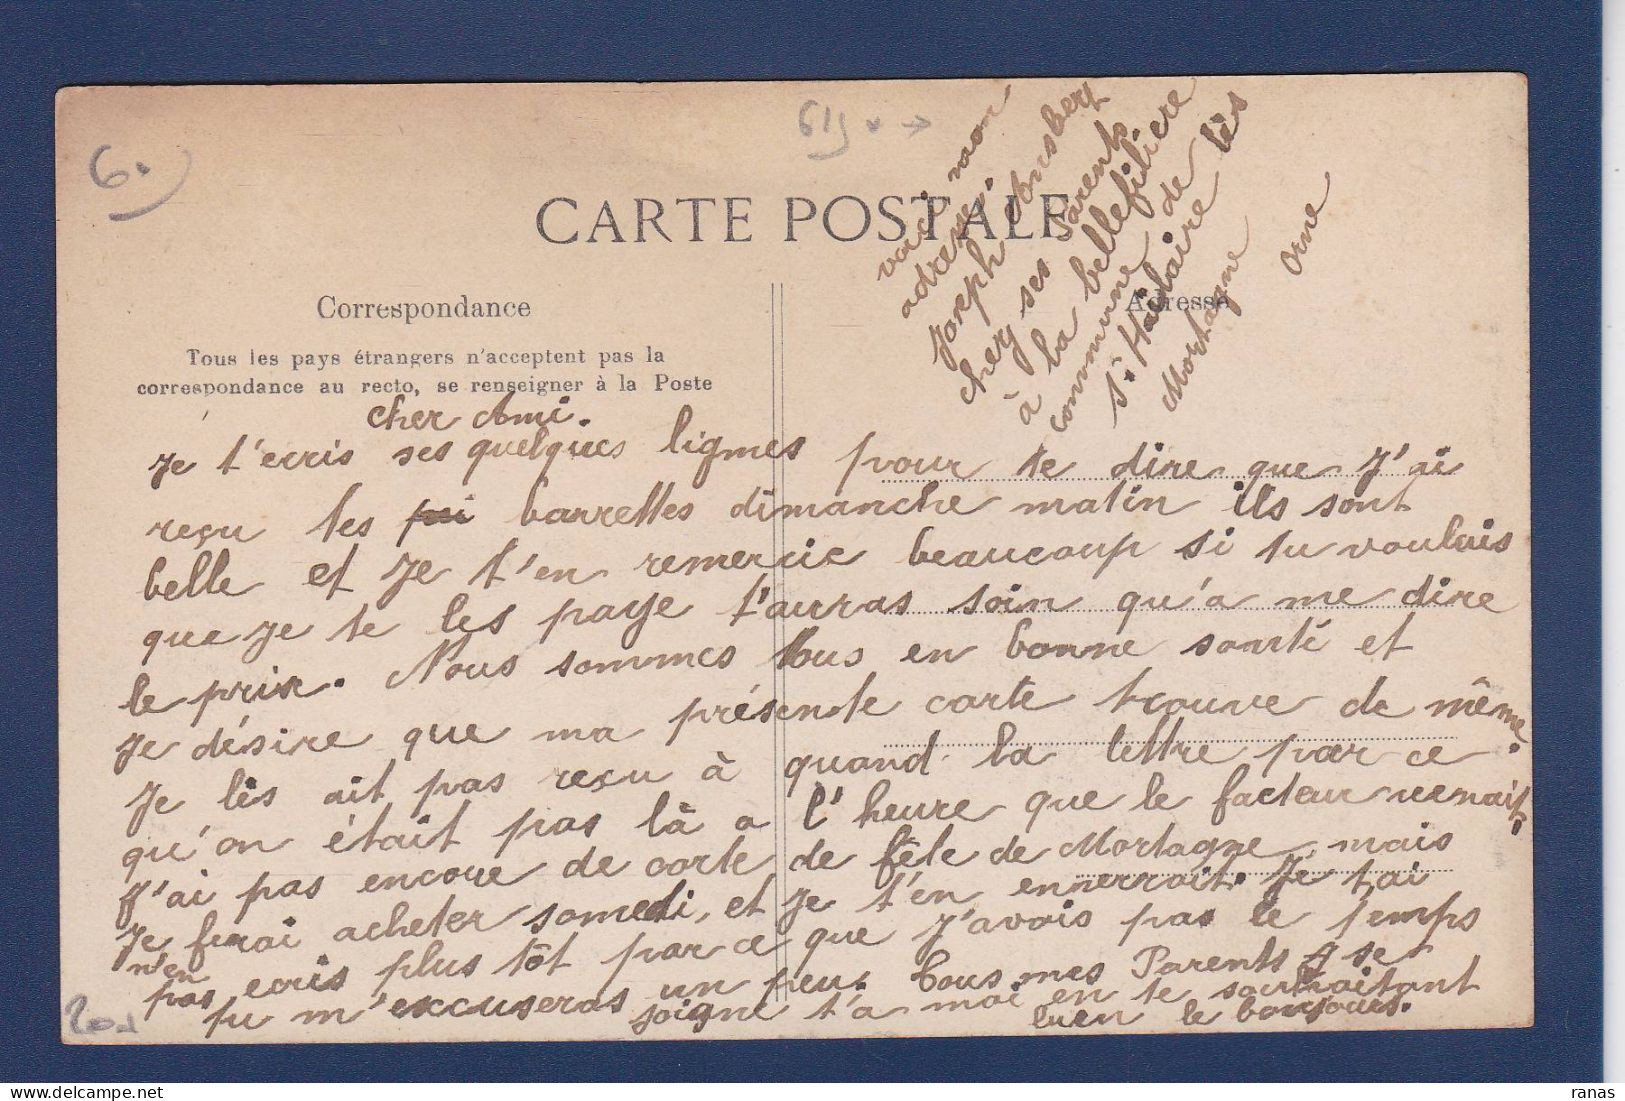 6.
CARTE POSTALE
voici mon
adresse.
Joseph Ansbert
cherz ses Parents
à la bellefilière
commune de
St Hailaire lès
Mortagne
Orne
Correspondance
Adresse
Tous les pays étrangers n'acceptent pas la
correspondance au recto, se renseigner à la Poste
cher Ami.
Je t'ecris ses quelques lignes pour te dire que J'ai
reçu les barrettes dimanche matin ils sont
belle et Je t'en remercie beaucoup si tu voulais
que Je te les paye t'auras soin qu'a me dire
le prix. Nous sommes tous en bonne santé et
Je désire que ma présente carte trouve de même.
Je lès ait pas reçu à quand la lettre par ce
qu'on était pas là a l'heure que le facteur venait.
J'ai pas encore de carte de fête de Mortagne mais
Je firai acheter samedi, et Je t'en enverrait. Je t'ai
n'en
pas ecris plus tôt par ce que J'avais pas le temps
tu m'excuseras un peu. Tous mes Parents se
joigne t'a moi en te souhaitant
bien le bonjours.
ranas